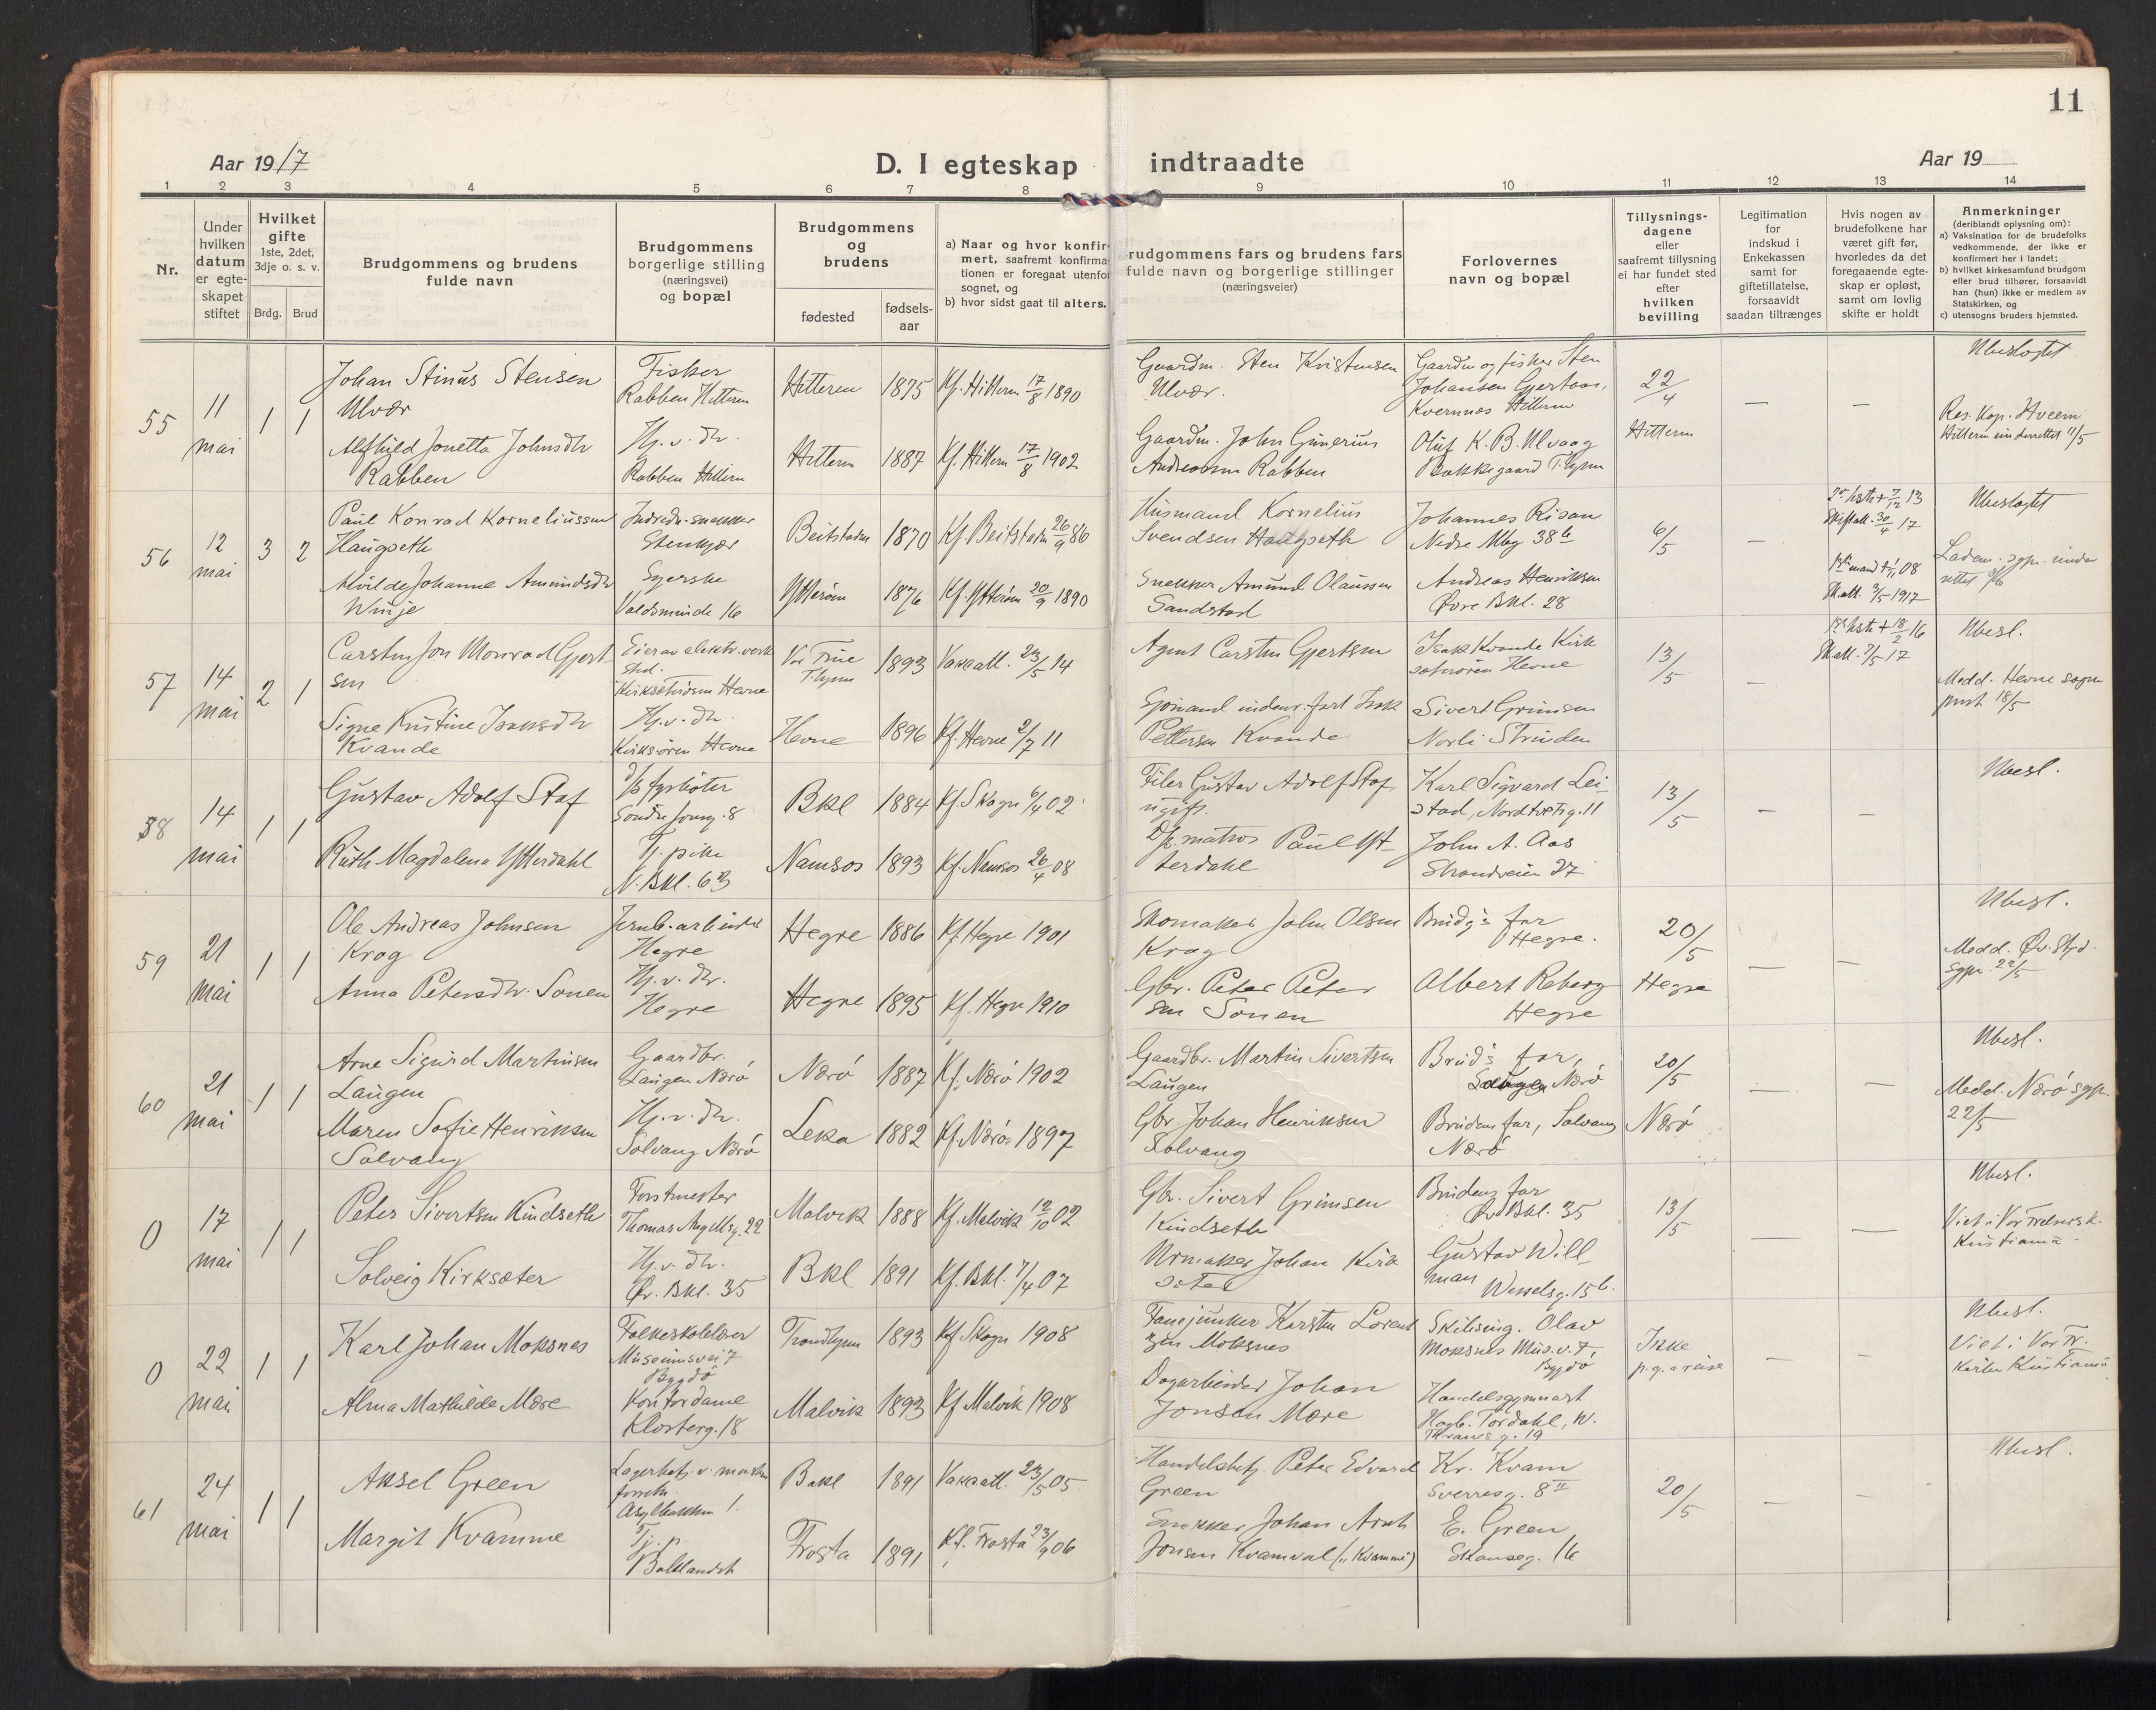 11
Aar 1917
D. I egteskap indtraadte
Aar 19
1 2 3 4 5 6 7 8 9 10 11 12 13 14
Nr.
Under
hvilken
datum
er egte-
skapet
stiftet
Hvilket
gifte
1ste, 2det,
3dje o. s. v.
Brdg. Brud
Brudgommens og brudens
fulde navn
Brudgommens
borgerlige stilling
(næringsvei)
og bopæl
Brudgommens
og
brudens
fødested
fødsels-
aar
a) Naar og hvor konfir-
mert, saafremt konfirma-
tionen er foregaat utenfor
sognet, og
b) hvor sidst gaat til alters.
rudgommens fars og brudens fars
fulde navn og borgerlige stillinger
(næringsveier)
Forlovernes
navn og bopæl
Tillysnings-
dagene
eller
saafremt tillysning
ei har fundet sted
efter
hvilken
bevilling
Legitimation
for
indskud i
Enkekassen
samt for
giftetillatelse,
forsaavidt
saadan tiltrænges
Hvis nogen av
brudefolkene har
været gift før,
hvorledes da det
foregaaende egte-
skap er opløst,
samt om lovlig
skifte er holdt
Anmerkninger
(deriblandt oplysning om):
a) Vaksination for de brudefolks
vedkommende, der ikke er
konfirmert her i landet;
b) hvilket kirkesamfund brudgom
eller brud tilhører, forsaavidt
han (hun) ikke er medlem av
Statskirken, og
c) utensogns bruders hjemsted.
55
11
mai
1 1
Johan Stinus Stensen
Ulvær
Alfhild Jonetta Johnsdtr
Rabben
Fisker
Rabben Hitteren
Hj. v. dr.
Rabben Hitteren
Hitteren 1875 Kf. Hitteren 17/8 1890
Hitteren 1887 Kf. Hitteren 17/8 1902
Gaardm. Sten Kristensen
Ulvær.
Gaardm. John Gunerius
Andreassen Rabben
Gaardm og fisker Sten
Johansen Gjertaas,
Kvernnes Hitteren
Oluf K. B. Ulvaag
Bakkegaard T.hjem
22/4
Hitteren
— —
Ubeslegtet
Res. Kap. Hveem
Hitteren underrettet 11/5
56
12
mai
3 2
Paul Konrad Korneliussen
Haugseth
Johanne Amundsdtr
Winje
Stenkjær
Syerske
Voldsminde 16
Beitstaden 1870 Kf. Beitstaden 26/9 86
Ytterøen 1876 Kf. Ytterøen 20/9 1890
Husmand Kornelius
Svendsen Haugseth
Snekker Amund Olaussen
Sandstad
Johannes Risan
Nedre Mbg 38b
Andreas Henriksen
Øvre Bkl. 28
6/5
—
2den hstr + 7/12 13
Skift att. 30/4 17
1ste mand + 1/11 08
Sk. att. 3/5 1917
Ubeslegtet
Laden. sgpr. under
rettet
57
14
mai
2 1
Carsten Jon Monrad Gjert
sen
Signe Kristine Isaksdtr
Kvande
Eier av elektr. verk
Kirksæterøren Hevne
Hj. v. dr.
Kirksøren Hevne
Vor Frue
T.hjem
1893 Vakc att. 23/5 14
Hevne 1896 Kf. Hevne 2/7 11
Agent Carsten Gjertsen
Isak
Pettersen Kvande
Isak Kvande Kirk
sæterøren Hevne
Sivert Grimsen
Norli Strinden
13/5
—
1ste hstr + 18/2 16
Sk att. 7/5 17
Ubesl.
Medd. Hevne sogne
prest 18/5
58
14
mai
1 1
Gustav Adolf Staf
Ruth Magdalena Ytterdahl
D/S fyrbøter
Søndre 8
Tj. pike
N. Bkl. 63
Bkl 1884 Kf. Skogn 6/4 02
Namsos 1893 Kf. Namsos 26/4 08
Filer Gustav Adolf Staf,
ugift.
D/S. matros Paul Yt-
terdahl
Karl Sigvard Lei-
stad, Nordtvetsg. 11
John A. Aas
Strandveien 27
13/5
— —
Ubesl.
59
21
mai
1 1
Ole Andreas Johnsen
Krog
Anna Petersdtr. Sonen
Jernb. arbeider
Hegre
Hj. v. dr.
Hegre
Hegre 1886 Kf. Hegre 1901
Hegre 1895 Kf. Hegre 1910
Skomaker John Olsen
Krog
Gbr. Peter Peter
sen Sonen
Brudg's far
Hegre.
Albert Reberg
Hegre
20/5
Hegre
— —
Ubesl.
Medd. Øv. Stjd.
sgpr. 22/5
60
21
mai
1 1
Arne Sigurd Martinsen
Laugen
Maren Sofie Henriksen
Solvang
Gaardbr.
Laugen Nærø
Hj. v. dr.
Solvang Nærø
Nærø 1887 Kf. Nærø 1902
Leka 1882 Kf. Nærø 1897
Gaardbr. Martin Sivertsen
Laugen
Gbr. Johan Henriksen
Solvang
Brud's far,
Laugen Nærø
Brudens far, Solvang
Nærø
20/5
Nærø
— —
Ubesl.
Medd. Nærø sgpr.
22/5
0
17
mai
1 1
Peter Sivertsen Kindseth
Solveig Kirksæter
Forstmester
Thomas Ang 22
Hj. v. dr.
Øv. Bkl. 35
Malvik 1888 Kf. Malvik 12/10 02
Bkl 1891 Kf. Bkl. 7/4 07
Gbr. Sivert Grimsen
Kindseth
Urmaker Johan Kirk
sæter
Brudens far
Øv. Bkl. 35
Gustav Will-
man
Wesselsg. 15b.
13/5
— —
Ubesl.
Viet i Vor Frelsers k.
Kristiania
0
22
mai
1 1
Karl Johan Moksnes
Alma Mathilde Mære
Folkeskolelærer
Museumsvei 7
Bygdø
Kontordame
Klosterg. 18
Trondhjem 1893 Kf Skogn 1908
Malvik 1893 Kf Malvik 1908
Fanejunker Karsten Lorent
zen Moksnes
Dagarbeider Johan
Jonsen Mære
Olav
Moksnes Mus. v. 7,
Bygdø
Handelsgymnast
Hagb. Tordahl, W.
Thranes g. 19
Ikke
p. g. a reise
— —
Ubesl.
Viet i Vor Fr.
Kirke Kristiania
61
24
mai
1 1
Aksel Green
Margit Kvamme
Asylbakken 1.
Tj. p.
Baklandet
Bakl 1891 Vakc att. 23/5 05
Frosta 1891 Kf. Frosta 23/9 06
Handelsbetj. Peter Edvard
Green
Snekker Johan Arnt
Jonsen Kvamval („Kvamme")
Kr. Kvam
Sverresg. 8 II
E. Green
Skanseg. 16
20/5
— —
Ubesl.